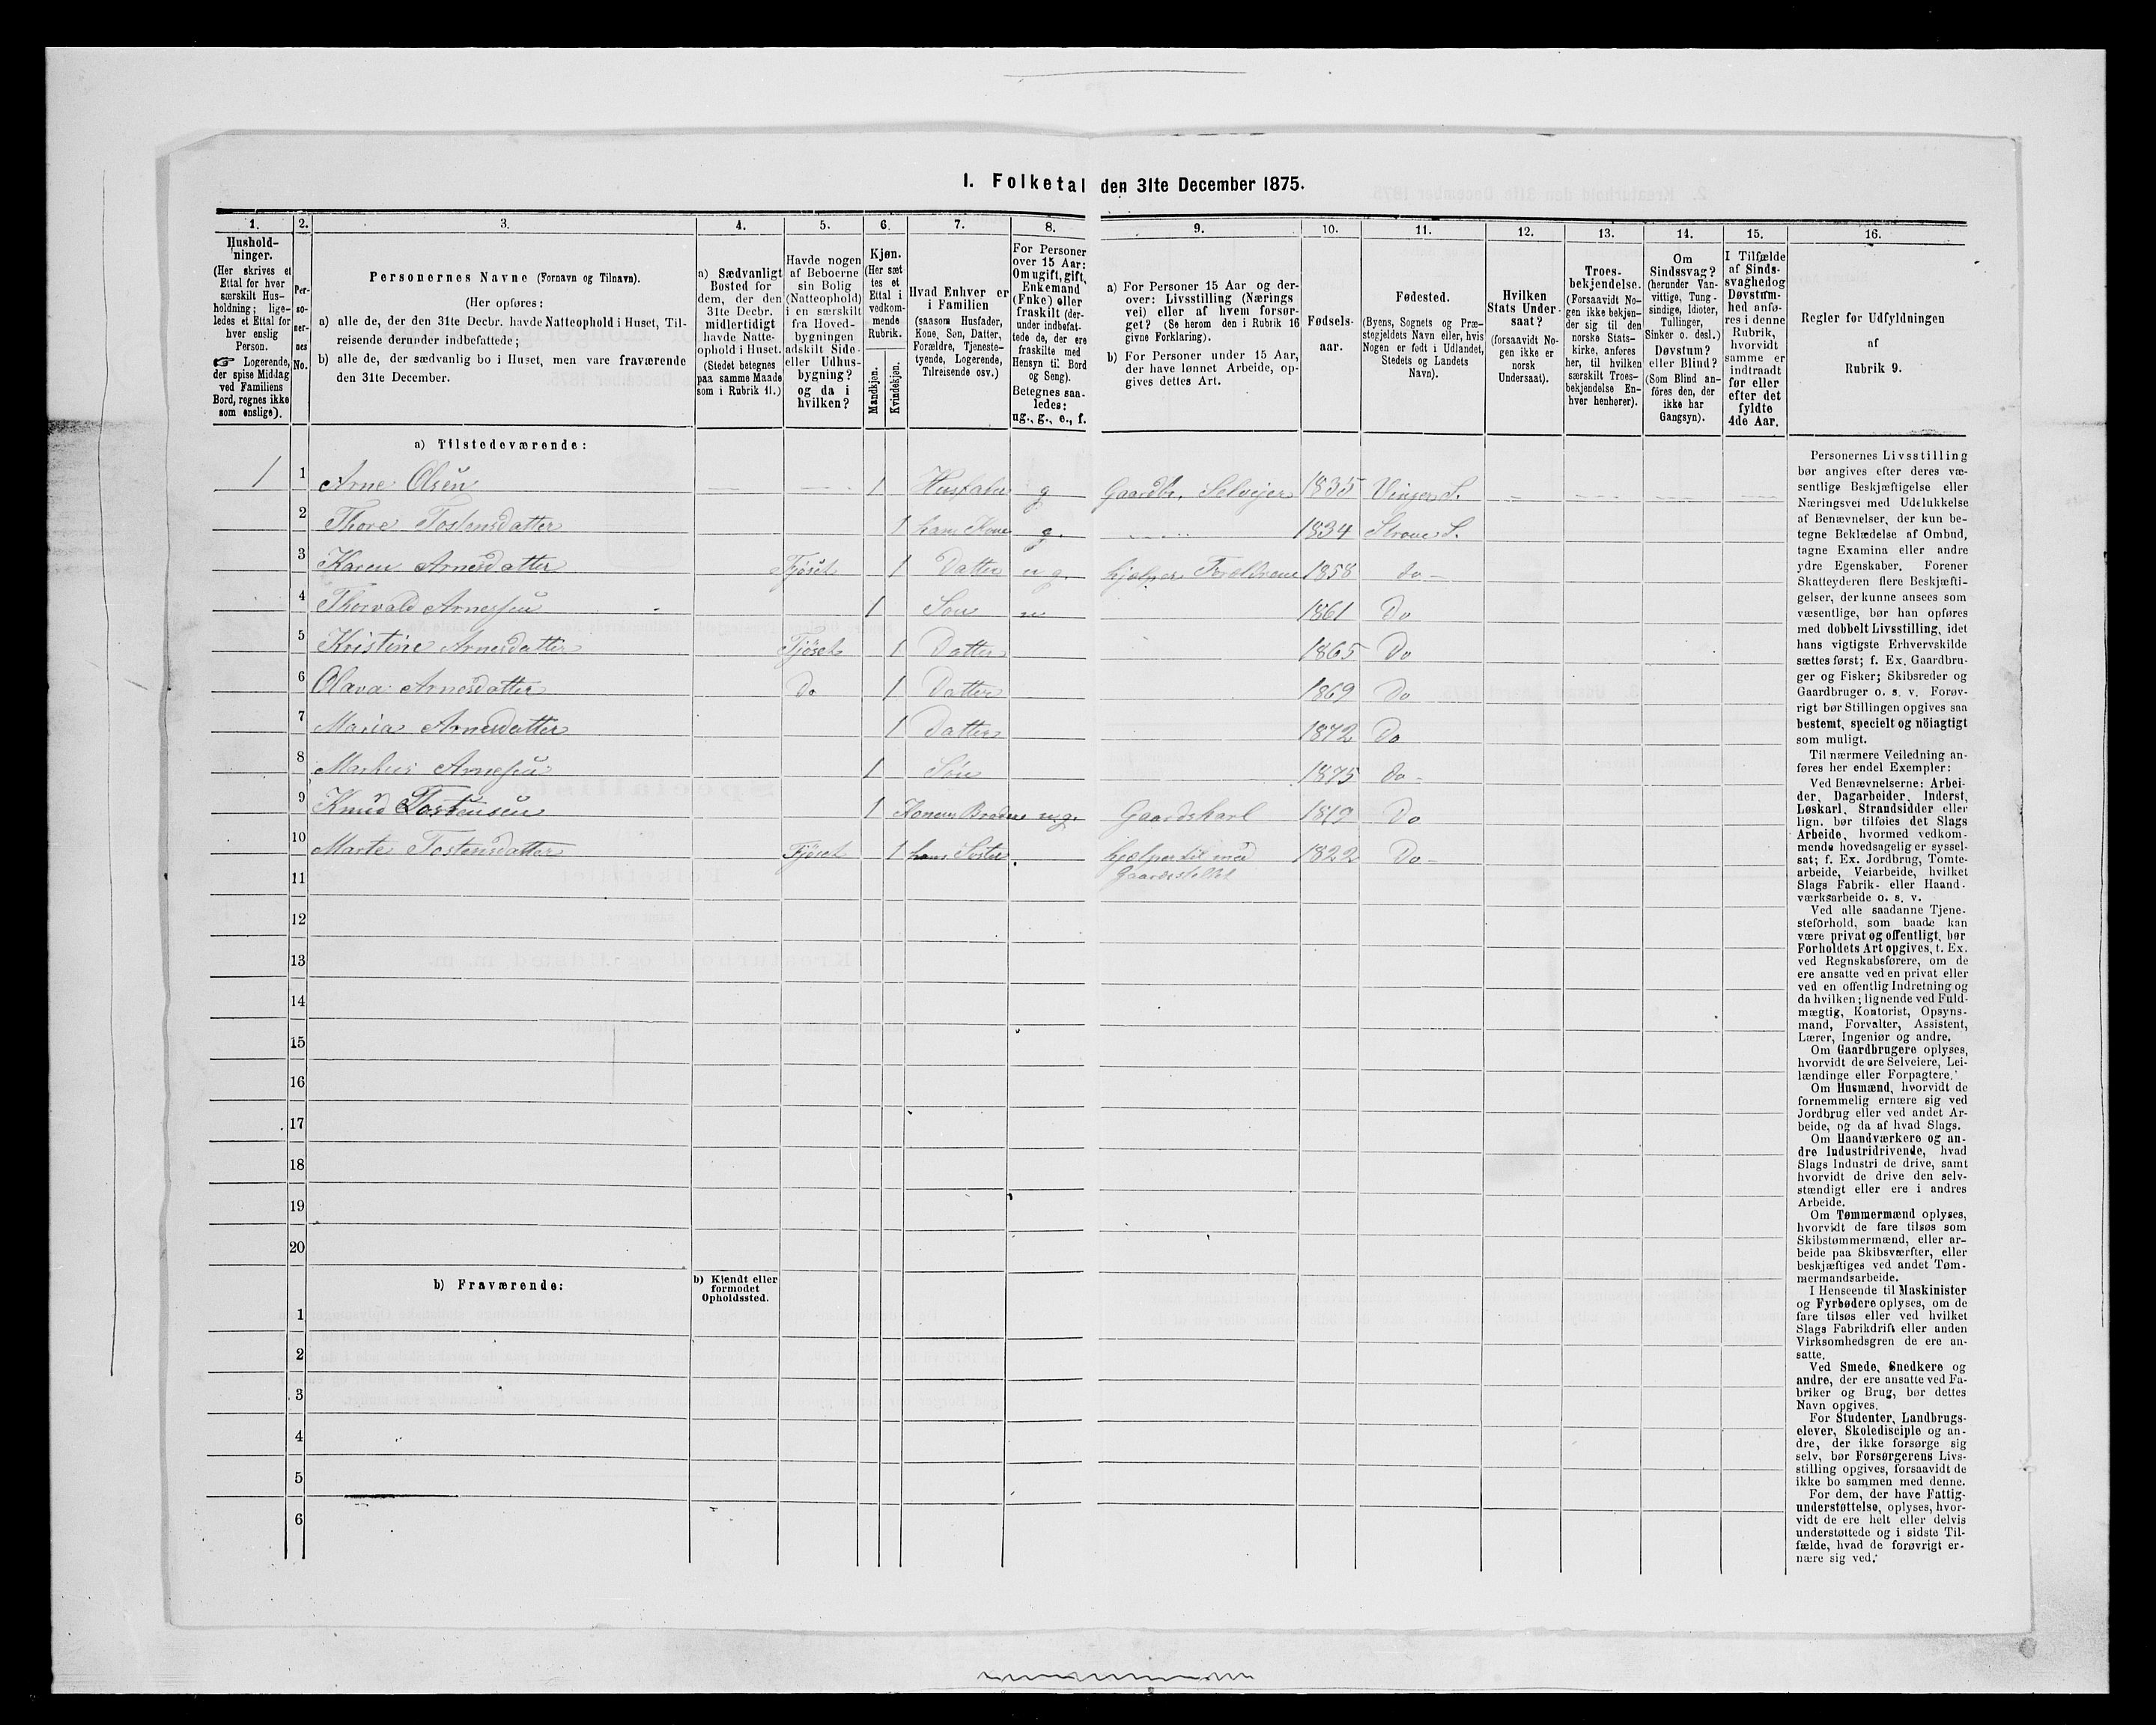 I. Folketal den 31te December 1875.
1. 2. 3. 4. 5. 6. 7. 8. 9. 10. 11. 12. 13. 14. 15. 16.
Hushold-
ninger.
(Her skrives et
Ettal for hver
særskilt Hus-
holdning; lige-
ledes et Ettal for
hver enslig
Person.
☞ Logerende,
der spise Middag
ved Familiens
Bord, regnes ikke
som enslige).
Per-
so-
ner-
nes
No.
Personernes Navne (Fornavn og Tilnavn).
(Her opføres:
a) alle de, der den 31te Decbr. havde Natteophold i Huset, Til-
reisende derunder indbefattede;
b) alle de, der sædvanlig bo i Huset, men vare fraværende
den 31te December.
a) Sædvanligt
Bosted for
dem, der den
31te Decbr.
midlertidigt
havde Natte-
ophold i Huset.
(Stedet betegnes
paa samme Maade
som i Rubrik 11.)
Havde nogen
af Beboerne
sin Bolig
(Natteophold)
i en særskilt
fra Hoved-
bygningen
adskilt Side-
eller Udhus-
bygning?
og da i
hvilken?
Kjøn.
(Her sæt
tes et
Ettal i
vedkom-
mende
Rubrik.
Mandkjøn.
Kvindekjøn.
Hvad Enhver er
i Familien
(saasom Husfader,
Kone, Søn, Datter,
Forældre, Tjeneste-
tyende, Logerende,
Tilreisende osv.)
For Personer
over 15 Aar:
Om ugift, gift,
Enkemand
(Enke) eller
fraskilt (der-
under indbefat-
tede de, der ere
fraskilte med
Hensyn til Bord
og Seng).
Betegnes saa-
ledes:
ug., g., e., f.
a) For Personer 15 Aar og der-
over: Livsstilling (Nærings
vei) eller af hvem forsør-
get? (Se herom den i Rubrik 16
givne Forklaring).
b) For Personer under 15 Aar,
der have lønnet Arbeide, op-
gives dettes Art.
Fødsels-
aar.
Fødested.
(Byens, Sognets og Præ-
stegjeldets Navn eller, hvis
Nogen er født i Udlandet,
Stedets og Landets
Navn).
Hvilken
Stats Under-
saat?
(forsaavidt No-
gen ikke er
norsk
Undersaat).
Troes-
bekjendelse.
(Forsaavidt No-
gen ikke bekjen-
der sig til den
norske Stats-
kirke, anføres
her, til hvilken
særskilt Troes-
bekjendelse En-
hver henhører).
Om
Sindssvag?
(herunder Van-
vittige, Tung-
sindige, Idioter,
Tullinger,
Sinker o. desl.)
Døvstum?
eller Blind?
(Som Blind an-
føres den, der
ikke har
Gangsyn).
I Tilfælde
af Sinds-
svaghed og
Døvstum-
hed anfø-
res i denne
Rubrik,
hvorvidt
samme er
indtraadt
før eller
efter det
fyldte
4de Aar.
Regler for Udfyldningen
af
Rubrik 9.
a) Tilstedeværende:
1 1 Arne Olsen 1 Husfader g Gaardbr. Selveier 1835 Vinger S.
2 Thore Tostensdatter 1 hans Kone g. 1834 Strøm S.
3 Karen Arnesdatter Fjöset 1 Datter ug. hjelper Forældrene 1858 do
4 Thorvald Arnesen 1 Søn 1861 Do
5 Kristine Arnesdatter Fjöset 1 Datter 1865 Do
6 Olava Arnesdatter Do 1 Datter 1869 Do
7 Maria Arnesdatter 1 Datter 1872 Do
8 Markus Arnesen 1 Søn 1875 do
9 Knud Tostensen 1 Konens Broder ug. Gaardskarl 1819 Do
10 Marte Tostensdatter Fjöset 1 hans Søster hjelper til med 1822 Do
Gaardsstellet
11
12
13
14
15
16
17
18
19
20
b) Fraværende:
b) Kjendt eller
formodet
Opholdssted.
1
2
3
4
5
6
Personernes Livsstilling
bør angives efter deres væ-
sentlige Beskjæftigelse eller
Næringsvei med Udelukkelse
af Benævnelser, der kun be-
tegne Beklædelse af Ombud,
tagne Examina eller andre
ydre Egenskaber. Forener
Skatteyderen flere Beskjæfti-
gelser, der kunne ansees som
væsentlige, bør han opføres
med dobbelt Livsstilling, idet
hans vigtigste Erhvervskilde
sættes først; f. Ex. Gaardbru-
ger og Fisker; Skibsreder og
Gaardbruger o. s. v. Forøv-
rigt bør Stillingen opgives saa
bestemt, specielt og nöiagtigt
som muligt.
Til nærmere Veiledning an-
føres her endel Exempler:
Ved Benævnelserne: Arbei-
der, Dagarbeider, Inderst,
Løskarl, Strandsidder eller
lign. bør tilføies det Slags
Arbeide, hvormed vedkom-
mende hovedsagelig er syssel-
sat; f. Ex. Jordbrug, Tomte-
arbeide, Veiarbeide, hvilket
Slags Fabrik- eller Haand-
værksarbeide o. s. v.
Ved alle saadanne Tjene-
steforhold, som baade kan
være privat og offentligt, bør
Forholdets Art opgives, t. Ex.
ved Regnskabsførere, om de
ere ansatte ved en privat eller
ved en offentlig Indretning og
da hvilken; lignende ved Fuld-
mægtig, Kontorist, Opsyns-
mand, Forvalter, Assistent,
Lærer, Ingeniør og andre.
Om Gaardbrugere oplyses,
hvorvidt de ere Selveiere, Lei-
lændinge eller Forpagtere.
Om Husmænd, hvorvidt de
fornemmelig ernære sig ved
Jordbrug eller ved andet Ar-
beide, og da af hvad Slags.
Om Haandværkere og an-
dre Industridrivende, hvad
Slags Industri de drive, samt
hvorvidt de drive den selv-
stændigt eller ere i andres
Arbeide.
Om Tømmermænd oplyses,
hvorvidt de fare tilsøs som
Skibstømmermænd, eller ar-
beide paa Skibsværfter, eller
beskjæftiges ved andet Tøm-
mermandsarbeide.
I Henseende til Maskinister
og Fyrbødere oplyses, om de
fare tilsøs eller ved hvilket
Slags Fabrikdrift eller anden
Virksomhedsgren de ere an-
satte.
Ved Smede, Snedkere og
andre, der ere ansatte ved Fa-
briker og Brug, bør dettes
Navn opgives.
For Studenter, Landbrugs-
elever, Skoledisciple og an-
dre, der ikke forsørge sig
selv, bør Forsørgerens Livs-
stilling opgives, forsaavidt de
ikke bo sammen med denne.
For dem, der have Fattig-
understøttelse, oplyses, hvor-
vidt de ere helt eller delvis
understøttede og i sidste Til-
fælde, hvad de forøvrigt er-
nære sig ved.